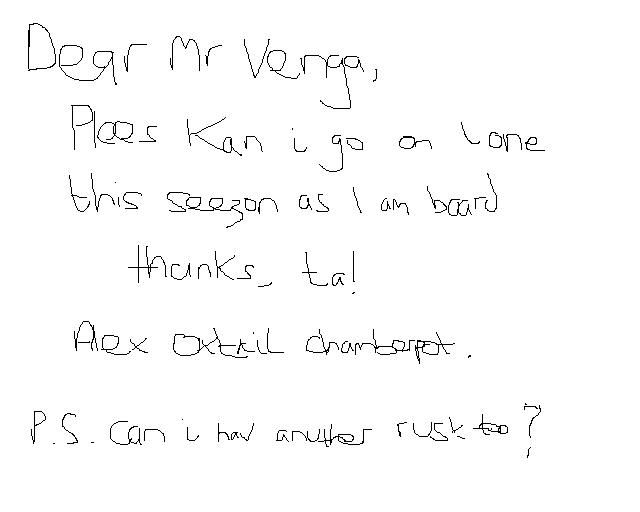 Dear Mr Venga,
Plees Kan i go on lone
this seezon as I am board
thanks, ta!
Alex Oxtail chamberpot.
P.S. Can i hav anuther rusk too?